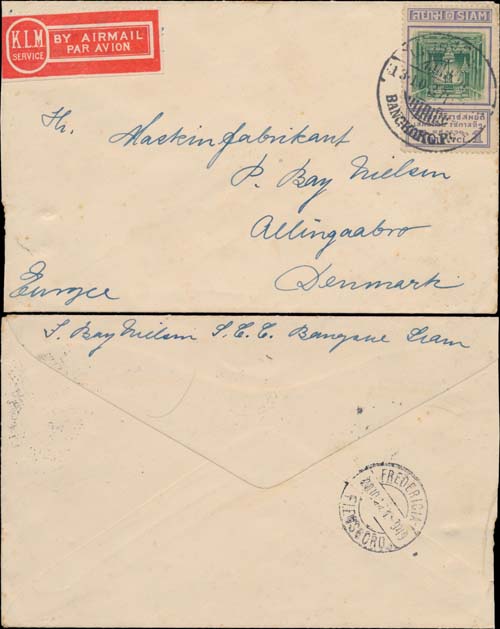 K.L.M
SERVICE
BY AIRMAIL
PAR AVION
SIAM
BANGKOK
1
Hr.
Maskinfabrikant
P. Bay Nielsen
Allingaabro
Denmark
Europe
S. Bay Nielsen S.C.C. Bangsue Siam
FREDERICIA
FLENSBORG